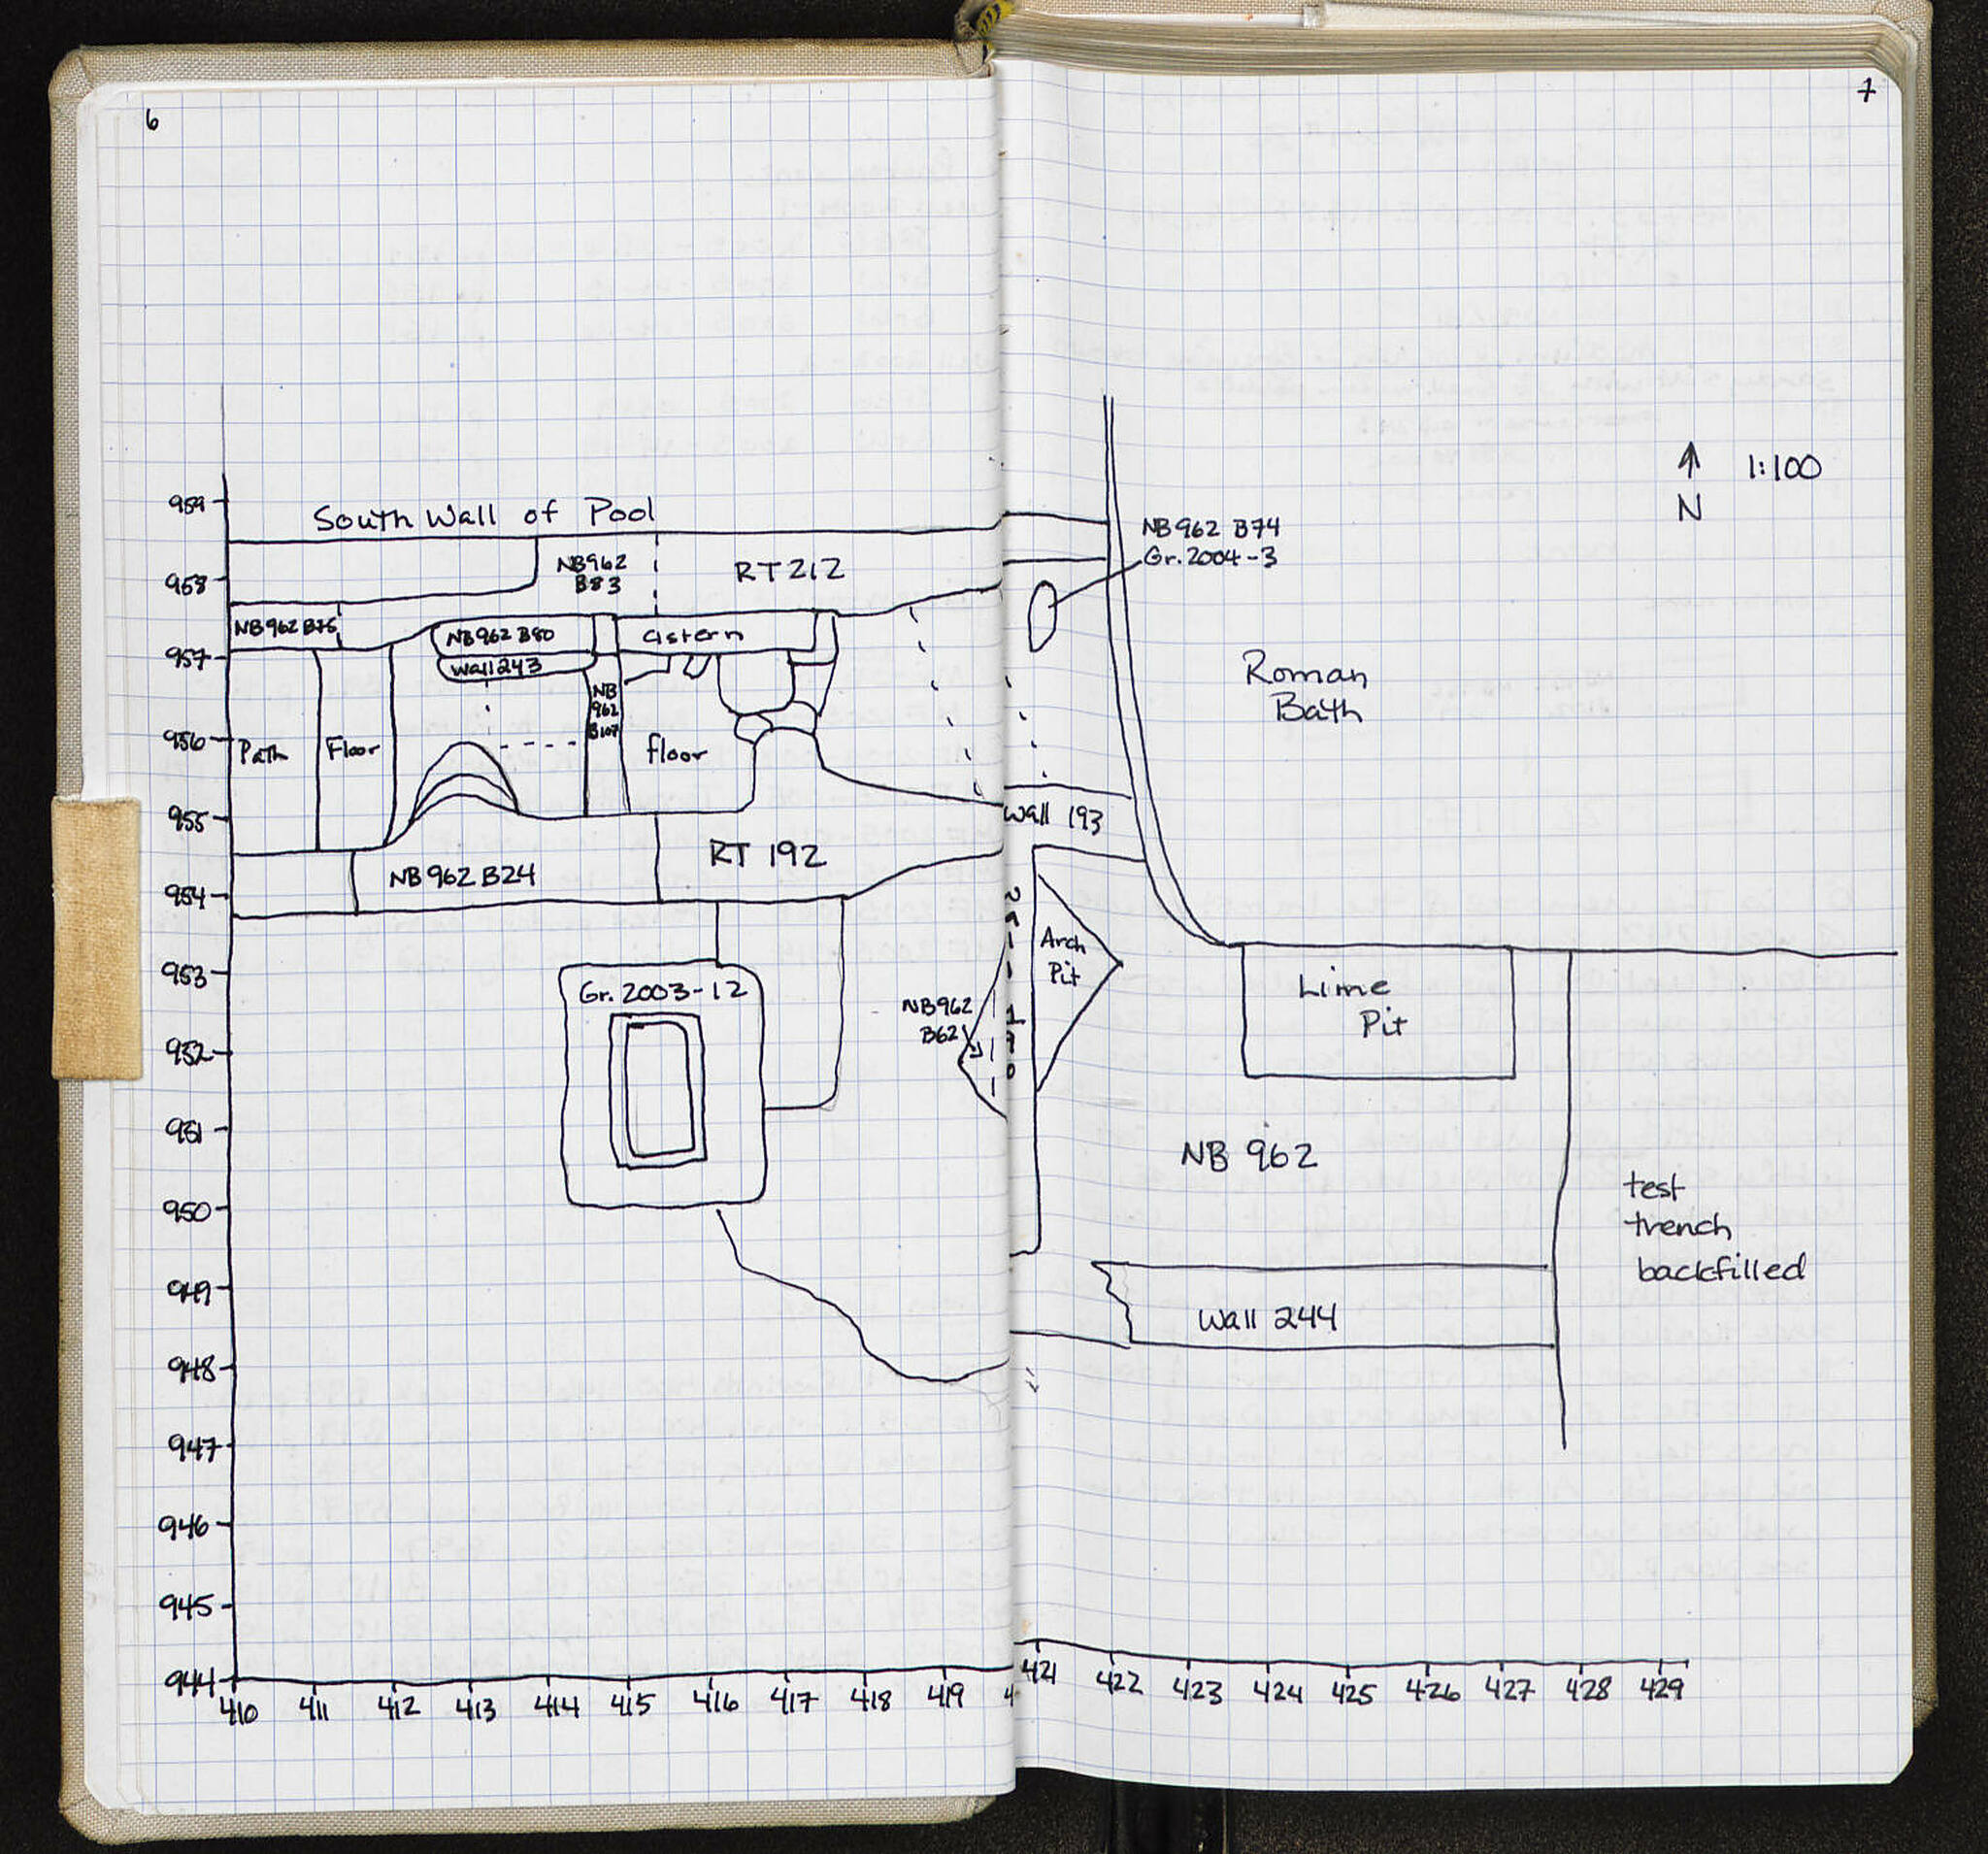 6
7
1:100
N
959
958
957
956
955
954
953
952
951
950
949
948
947
946
945
944
South Wall of Pool
NB962
B83
RT 212
NB 962 B74
Gr. 2004-3
NB 962 B76
NB 962 B80
cistern
Wall 243
NB
962
B107
Path
Floor
floor
Roman
Bath
Wall 193
RT 192
NB 962 B24
Arch
Pit
Gr. 2003-12
NB 962
B62
Lime
Pit
NB 962
test
trench
backfilled
Wall 244
410 411 412 413 414 415 416 417 418 419 421 422 423 424 425 426 427 428 429